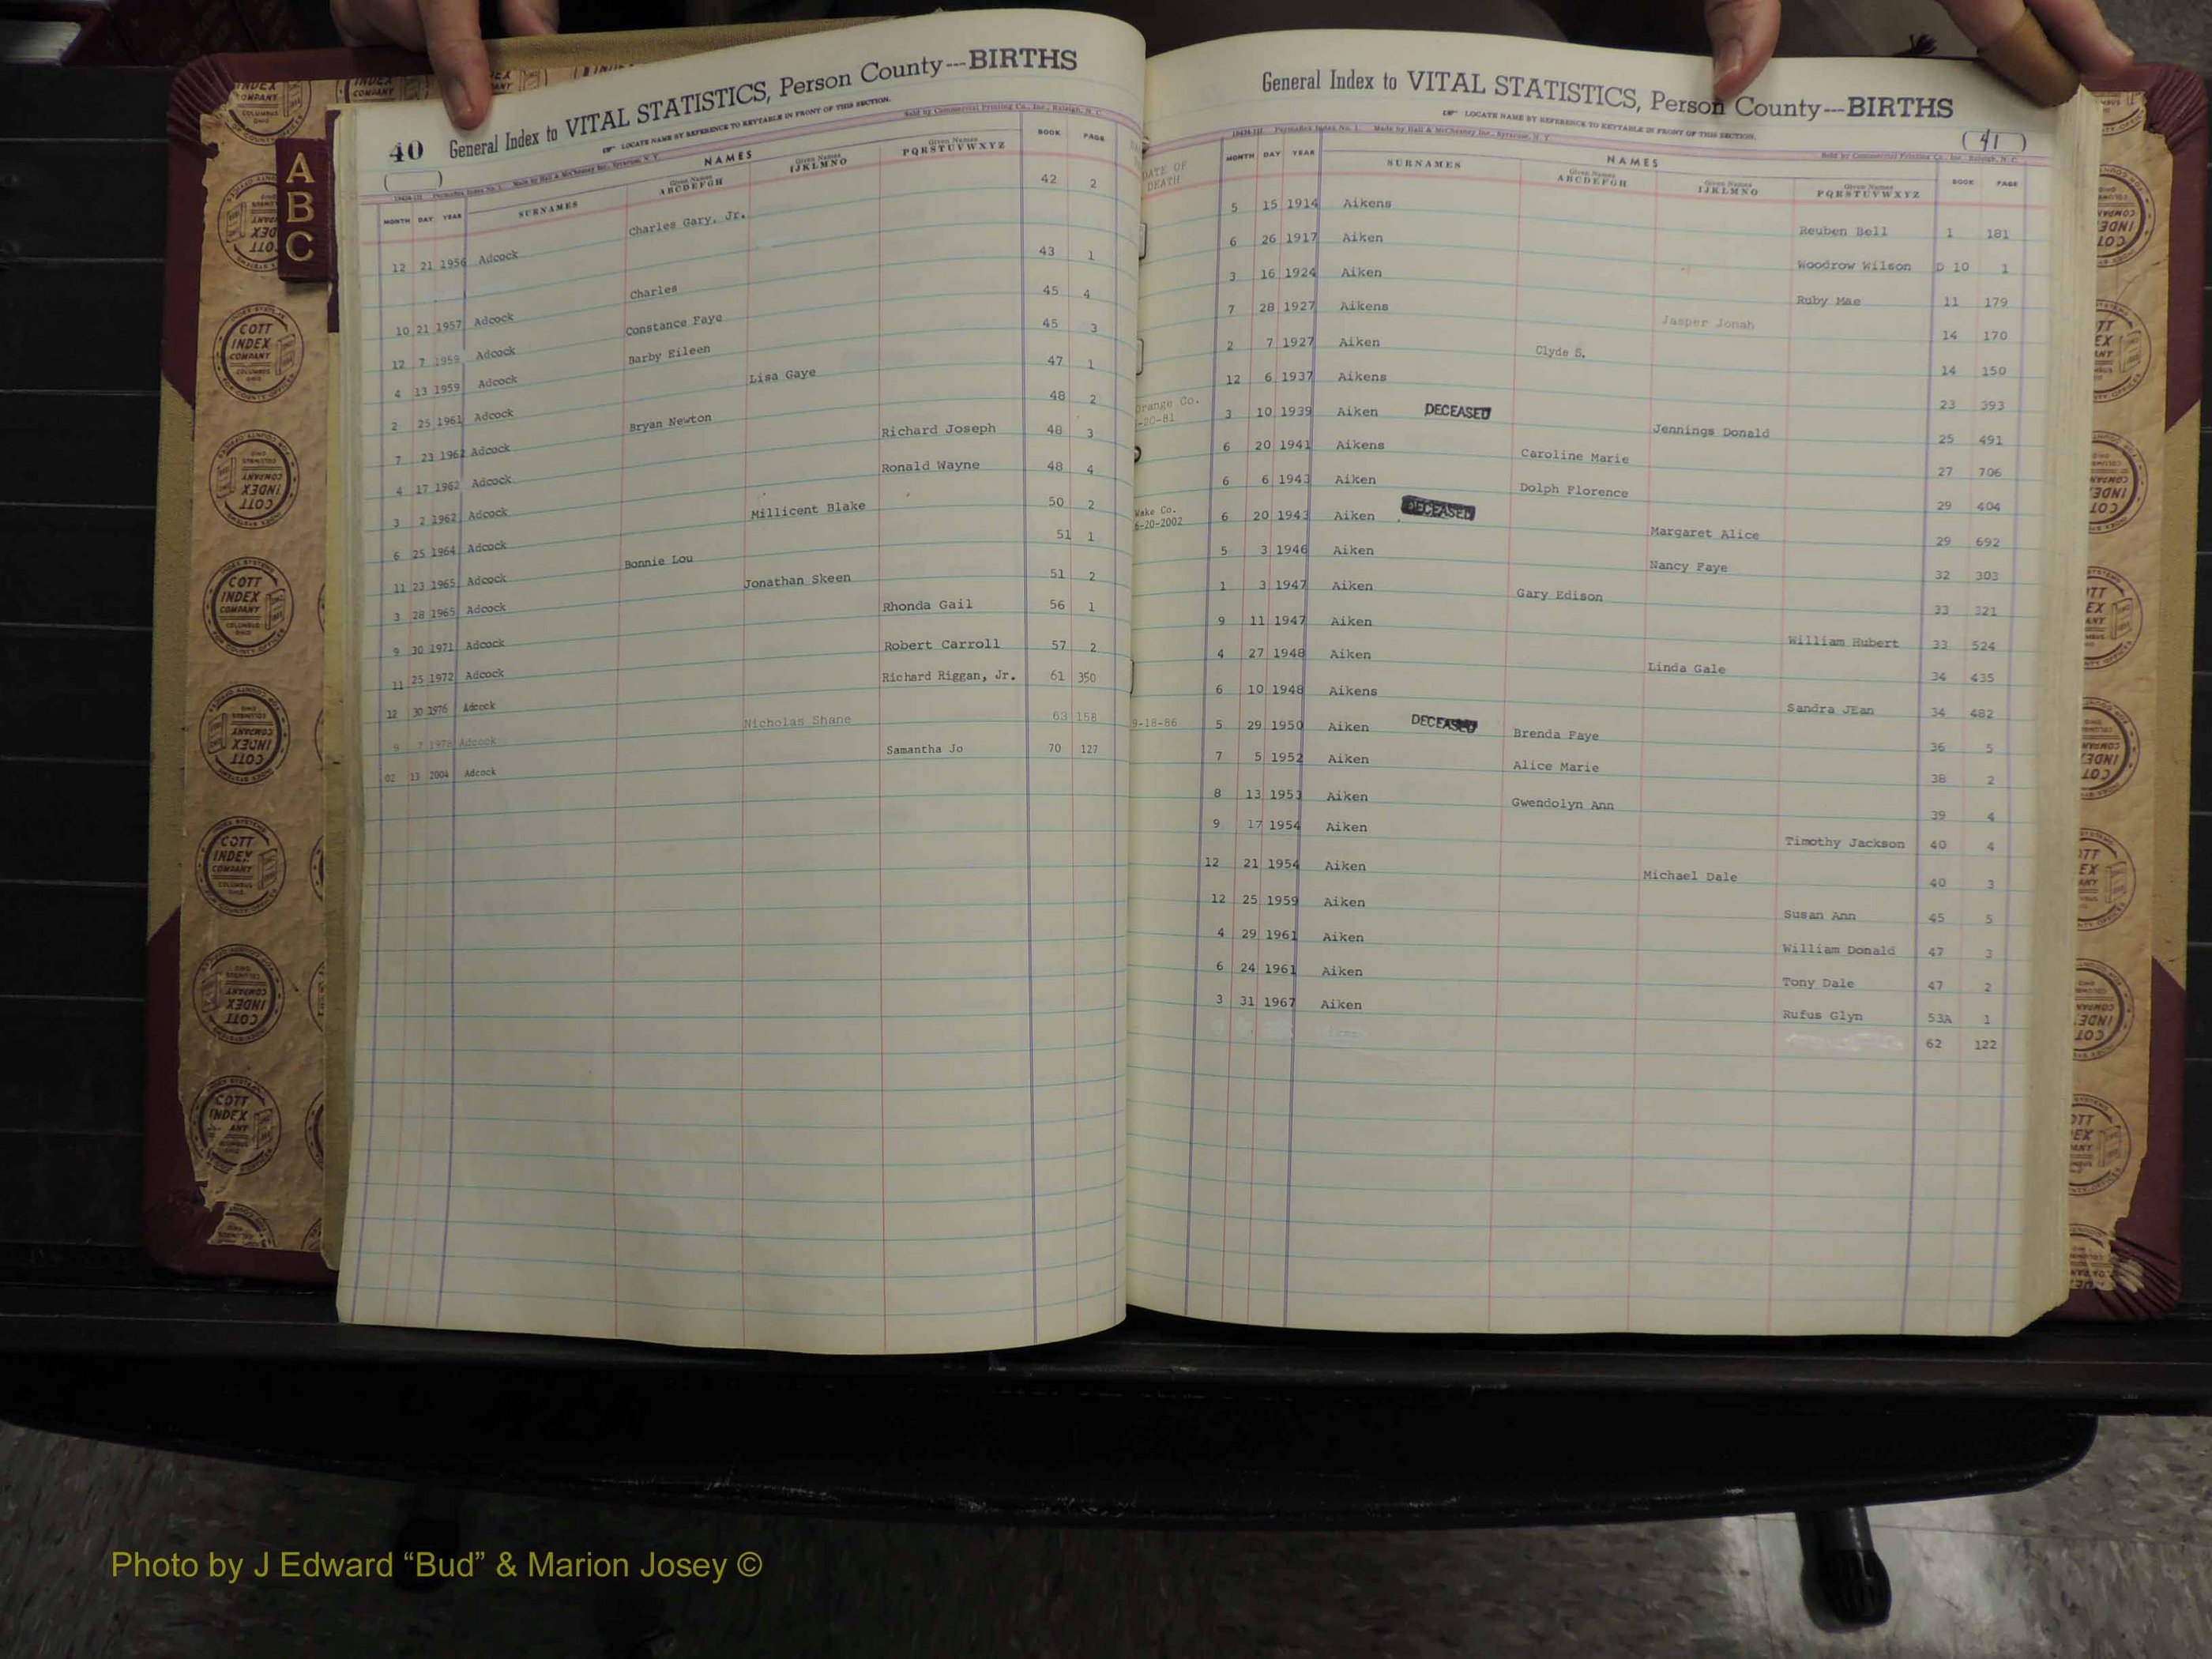 40 General Index to VITAL STATISTICS, Person County---BIRTHS
LOCATE NAME BY REFERENCE TO KEYTABLE IN FRONT OF THIS SECTION.
Made by Hall & McChesney Inc., Syracuse, N. Y. Sold by Commercial Printing Co., Inc., Raleigh, N. C.
NAMES
MONTH DAY YEAR SURNAMES Given Names ABCDEFGH Given Names IJKLMNO Given Names PQRSTUVWXYZ BOOK PAGE
12 21 1956 Adcock Charles Gary, Jr. 42 2
10 21 1957 Adcock Charles 43 1
12 7 1959 Adcock Constance Faye 45 4
4 13 1959 Adcock Barby Eileen 45 3
2 25 1961 Adcock Lisa Gaye 47 1
7 23 1962 Adcock Bryan Newton 48 2
4 17 1962 Adcock Richard Joseph 48 3
3 2 1962 Adcock Ronald Wayne 48 4
6 25 1964 Adcock Millicent Blake 50 2
11 23 1965 Adcock Bonnie Lou 51 1
3 28 1965 Adcock Jonathan Skeen 51 2
9 30 1971 Adcock Rhonda Gail 56 1
11 25 1972 Adcock Robert Carroll 57 2
12 30 1976 Adcock Richard Riggan, Jr. 61 350
9 7 1978 Adcock Nicholas Shane 63 158
02 13 2004 Adcock Samantha Jo 70 127
General Index to VITAL STATISTICS, Person County---BIRTHS
LOCATE NAME BY REFERENCE TO KEYTABLE IN FRONT OF THIS SECTION.
(41)
Made by Hall & McChesney Inc., Syracuse, N. Y. Sold by Commercial Printing Co., Inc., Raleigh, N. C.
NAMES
DATE OF DEATH MONTH DAY YEAR SURNAMES Given Names ABCDEFGH Given Names IJKLMNO Given Names PQRSTUVWXYZ BOOK PAGE
5 15 1914 Aikens Reuben Bell 1 181
6 26 1917 Aiken Woodrow Wilson D 10 1
3 16 1924 Aiken Ruby Mae 11 179
7 28 1927 Aikens Jasper Jonah 14 170
2 7 1927 Aiken Clyde S. 14 150
12 6 1937 Aikens 23 393
Orange Co. -20-81 3 10 1939 Aiken DECEASED Jennings Donald 25 491
6 20 1941 Aikens Caroline Marie 27 706
6 6 1943 Aiken Dolph Florence 29 404
Wake Co. 6-20-2002 6 20 1943 Aiken DECEASED Margaret Alice 29 692
5 3 1946 Aiken Nancy Faye 32 303
1 3 1947 Aiken Gary Edison 33 321
9 11 1947 Aiken William Hubert 33 524
4 27 1948 Aiken Linda Gale 34 435
6 10 1948 Aikens Sandra JEan 34 482
9-18-86 5 29 1950 Aiken DECEASED Brenda Faye 36 5
7 5 1952 Aiken Alice Marie 38 2
8 13 1953 Aiken Gwendolyn Ann 39 4
9 17 1954 Aiken Timothy Jackson 40 4
12 21 1954 Aiken Michael Dale 40 3
12 25 1959 Aiken Susan Ann 45 5
4 29 1961 Aiken William Donald 47 3
6 24 1961 Aiken Tony Dale 47 2
3 31 1967 Aiken Rufus Glyn 53A 1
62 122
A
B
C
COTT INDEX COMPANY COLUMBUS OHIO
Photo by J Edward “Bud” & Marion Josey ©